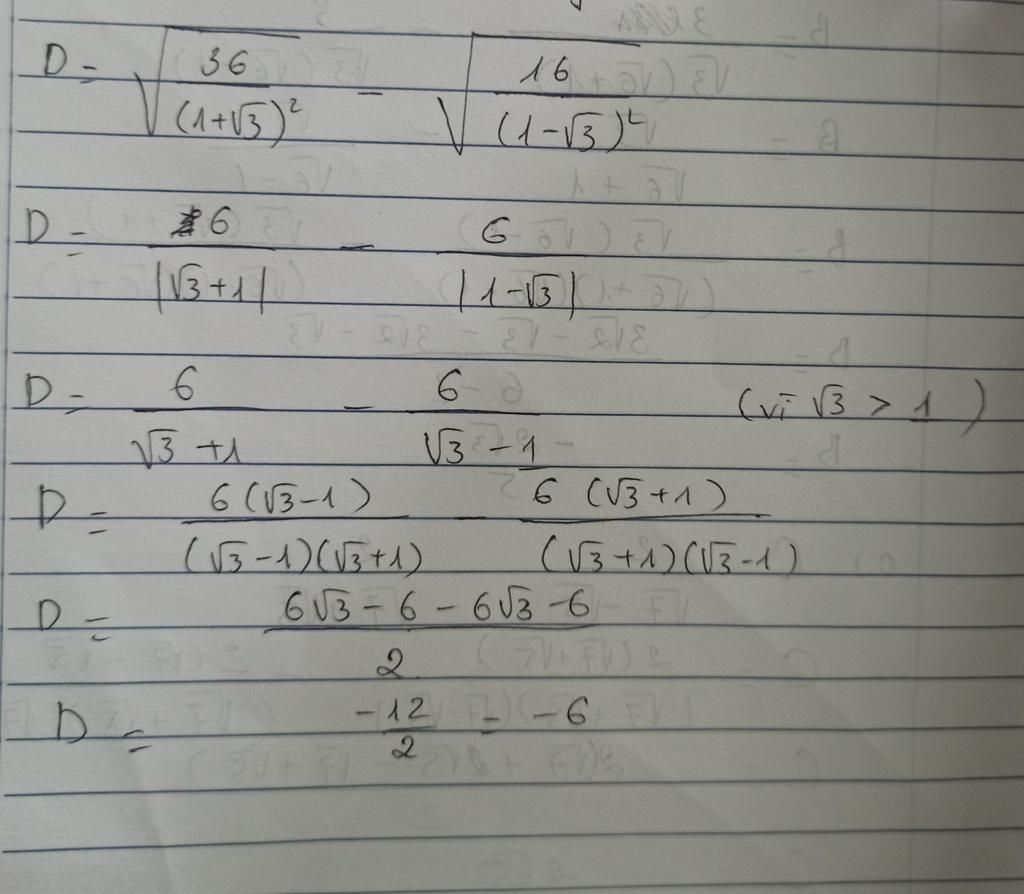 D = √(36/(1+√3)²) - √(16/(1-√3)²)
D = 6/|√3+1| - 6/|1-√3|
D = 6/(√3+1) - 6/(√3-1) (vì √3 > 1)
D = 6(√3-1)/((√3-1)(√3+1)) - 6(√3+1)/((√3+1)(√3-1))
D = (6√3-6-6√3-6)/2
D = -12/2 = -6